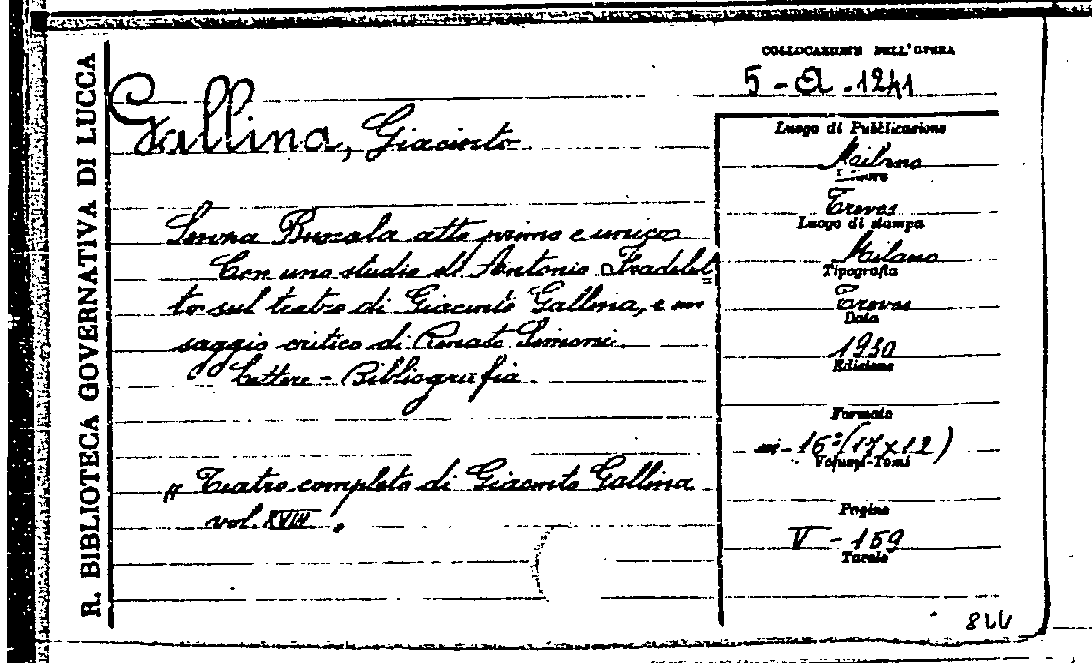 R. BIBLIOTECA GOVERNATIVA DI LUCCA
COLLOCAZIONE DELL'OPERA
5 - Q - 1241
Gallina, Giacinto
Serena Buzola atto primo e unico
Con uno studio di Antonio Fradelet
to sul teatro di Giacinto Gallina, e un
saggio critico di Renato Simoni.
Lettere - Bibliografia.
„ Teatro completo di Giacinto Gallina
vol. XVIII „
Luogo di Pubblicazione
Milano
Editore
Treves
Luogo di stampa
Milano
Tipografia
Treves
Data
1930
Edizione
Formato
in - 16° (17 x 12)
Volumi-Tomi
Pagine
V - 159
Tavole